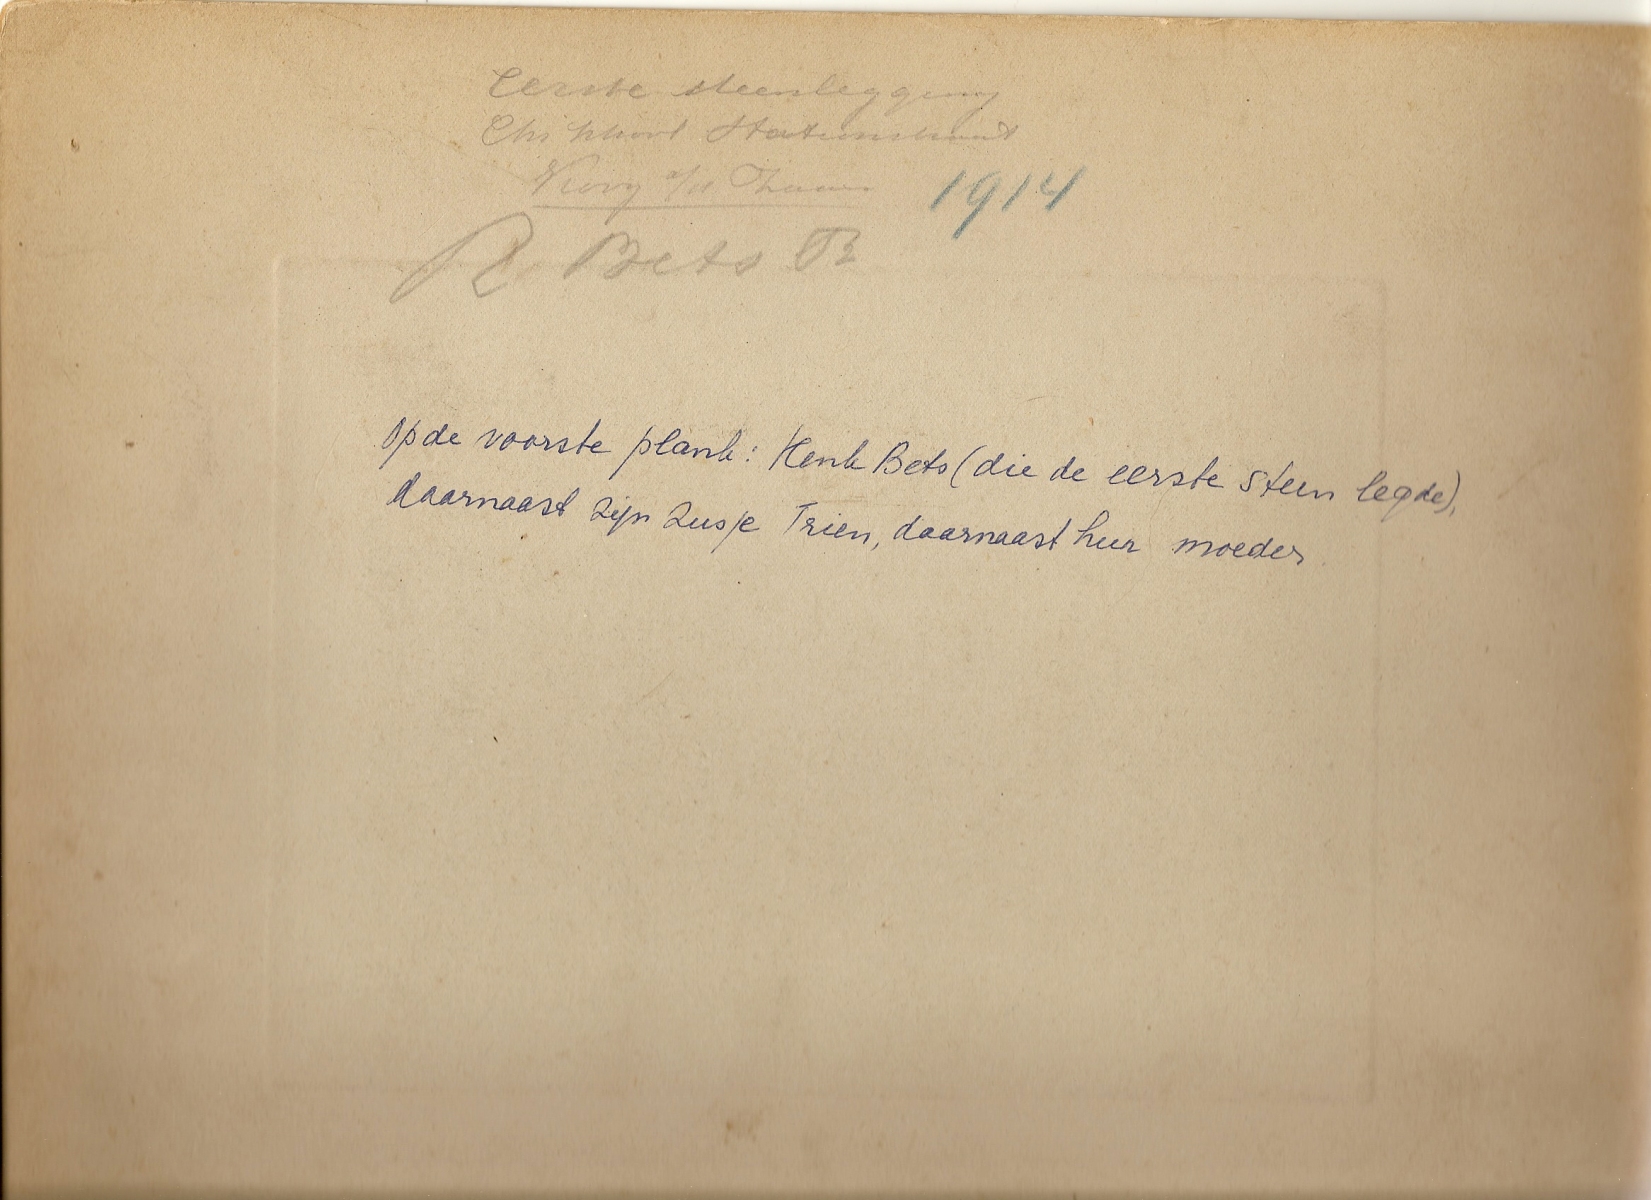 Eerste steenlegging
Chr School Stationstraat
Koog a/d Zaan 1914
R Bets Tz
Op de voorste plank: Henk Bets (die de eerste steen legde),
daarnaast zijn zusje Trien, daarnaast hun moeder